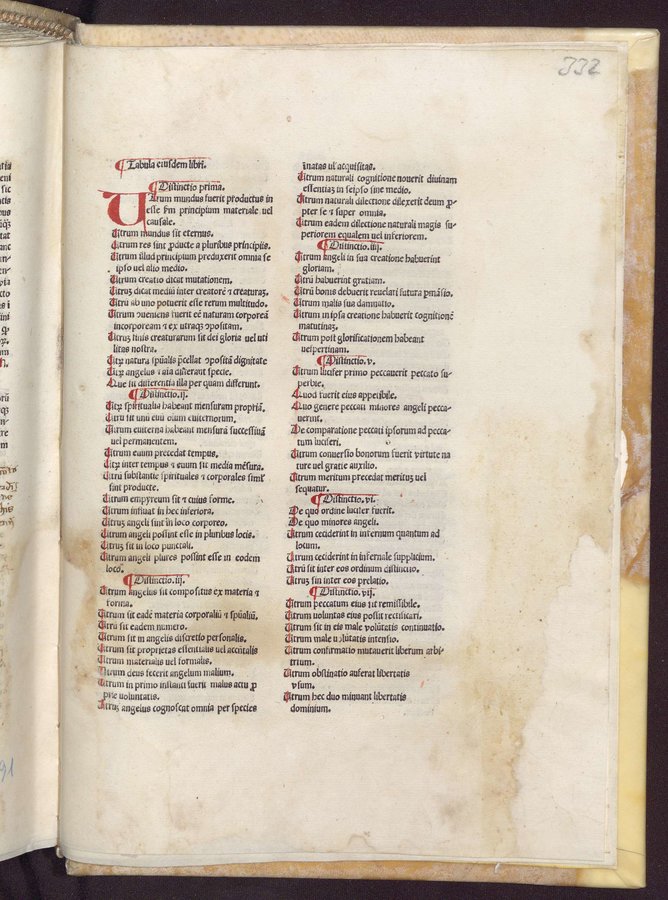 332
¶ Tabula eiusdem libri.
¶ Distinctio prima.
Utrum mundus fuerit productus in
esse ꝑm principium materiale uel
causale.
Utrum mundus sit eternus.
Utrum res sint ꝓducte a pluribus principiis.
Utrum illud principium produxerit omnia se
ipso uel alio medio.
Utrum creatio dicat mutationem.
Utruꝫ dicat mediũ inter creatorẽ ⁊ creaturaꝫ.
Utrũ ab uno potuerit esse rerum multitudo.
Utrum ꝯueniens fuerit eẽ naturam corporeã
incorpoream ⁊ ex utraqꝫ ꝯpositam.
Utruꝫ finis creaturarum sit dei gloria uel uti
litas nostra.
Utꝝ natura spũalis p̃cellat ꝯpositã dignitate
Utꝝ angelus ⁊ aĩa differant specie.
Que sit differentia illa per quam differunt.
¶ Distinctio.ij.
Utꝝ spiritualia habeant mensuram propriã.
Utrũ sit unũ euũ oĩum euiternorum.
Utrum euiterna habeant mensurã successiuã
uel permanentem.
Utrum euum precedat tempus.
Utꝝ inter tempus ⁊ euum sit media mẽsura.
Utrũ substantie spirituales ⁊ corporales simꝉ
sint producte.
Utrum empyreum sit ⁊ cuius forme.
Utrum influat in hec inferiora.
Utruꝫ angeli sint in loco corporeo.
Utrum angeli possint esse in pluribus locis.
Utruꝫ sit in loco punctali.
Utrum angeli plures possint esse in eodem
loco.
¶ Distinctio.iij.
Utrum angelus sit compositus ex materia ⁊
forma.
Utrum sit eadẽ materia corporaliũ ⁊ spũaliũ.
Utrũ sit eadem numero.
Utrum sit in angelis discretio personalis.
Utrum sit proprietas essentialis uel accñtalis
Utrum materialis uel formalis.
Utrum deus fecerit angelum malum.
Utrum in primo instanti fuerit malus actu ꝓ
prie voluntatis.
Utruꝫ angelus cognoscat omnia per species
ĩnatas uꝉ acquisitas.
Utrum naturali cognitione nouerit diuinam
essentiaꝫ in seipso sine medio.
Utrum naturali dilectione dilexerit deum ꝓ-
pter se ⁊ super omnia.
Utrum eadem dilectione naturali magis su-
periorem equalem uel inferiorem.
¶ Distinctio.iiij.
Utrum angeli in sua creatione habuerint
gloriam.
Utrũ habuerint gratiam.
Utrũ bonis debuerit reuelari futura ꝑmãsio.
Utrum malis sua damnatio.
Utrum in ipsa creatione habuerit cognitionẽ
matutinaꝫ.
Utrum post glorificationem habeant
uespertinam.
¶ Distinctio.v.
Utrum lucifer primo peccauerit peccato su-
perbie.
Quod fuerit eius appetibile.
Quo genere peccati minores angeli pecca-
uerint.
De comparatione peccati ipsorum ad pecca-
tum luciferi.
Utrum conuersio bonorum fuerit virtute na
ture uel gratie auxilio.
Utrum meritum precedat meritum uel
sequatur.
¶ Distinctio.vi.
De quo ordine lucifer fuerit.
De quo minores angeli.
Utrum ceciderint in infernum quantum ad
locum.
Utrum ceciderint in infernale supplicium.
Utrũ sit inter eos ordinum distinctio.
Utruꝫ sin inter eos prelatio.
¶ Distinctio.vij.
Utrum peccatum eius sit remissibile.
Utrum voluntas eius possit rectificari.
Utrum sit in eis male volũtatis continuatio.
Utrum male uolũtatis intensio.
Utrum confirmatio mutauerit liberum arbi-
trium.
Utrum obstinatio auferat libertatis
vsum.
Utrum hec duo minuant libertatis
dominium.